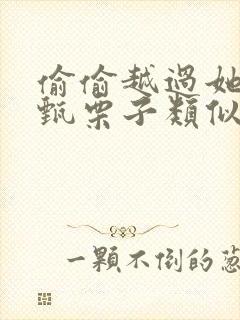 偷偷越過她
甄栗子類似
一顆不倒的蔥